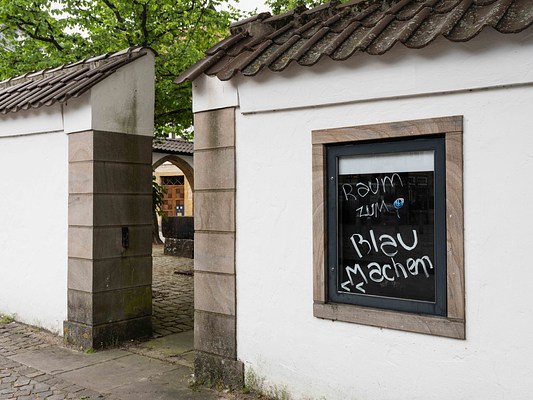 Raum
zum
Blau
Machen
<<